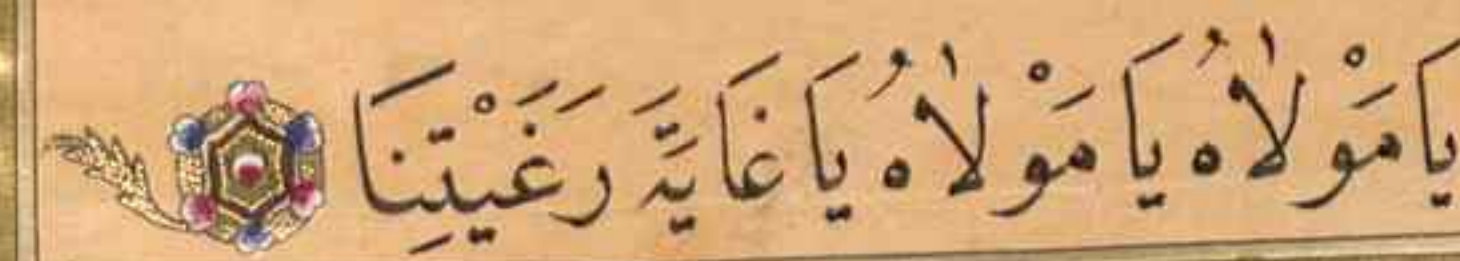 يَا مَوْلَاهُ يَا مَوْلَاهُ يَا غَايَةَ رَغْيَتِنَا